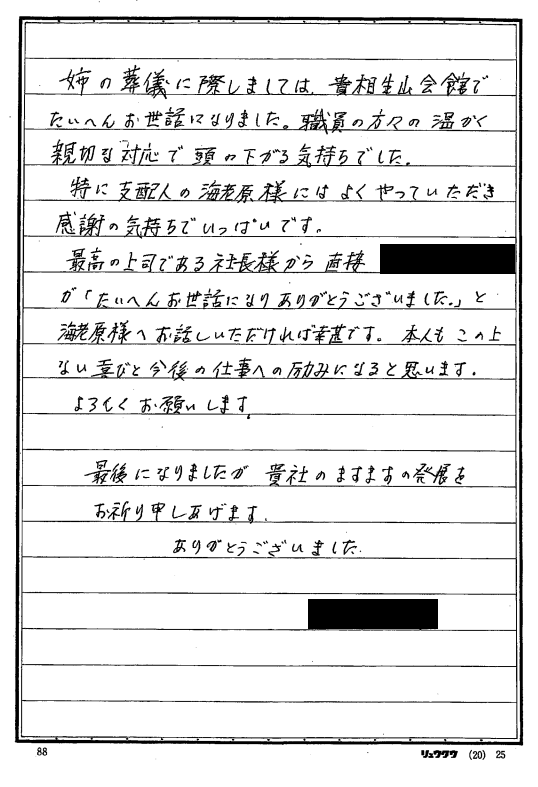 姉の葬儀に際しましては、貴相生山会館で
たいへんお世話になりました。職員の方々の温かく
親切な対応で頭の下がる気持ちでした。
特に支配人の海老原様にはよくやっていただき
感謝の気持ちでいっぱいです。
最高の上司である社長様から直接
が「たいへんお世話になりありがとうございました。」と
海老原様へお話しいただければ幸甚です。本人もこの上
ない喜びと今後の仕事への励みになると思います。
よろしくお願いします。
最後になりましたが貴社のますますの発展を
お祈り申しあげます。
ありがとうございました。
88
リュウグウ (20) 25